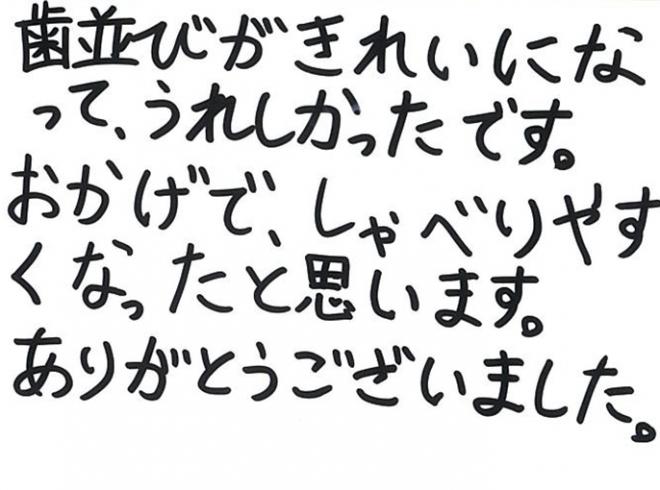 歯並びがきれいにな
って、うれしかったです。
おかげで、しゃべりやす
くなったと思います。
ありがとうございました。